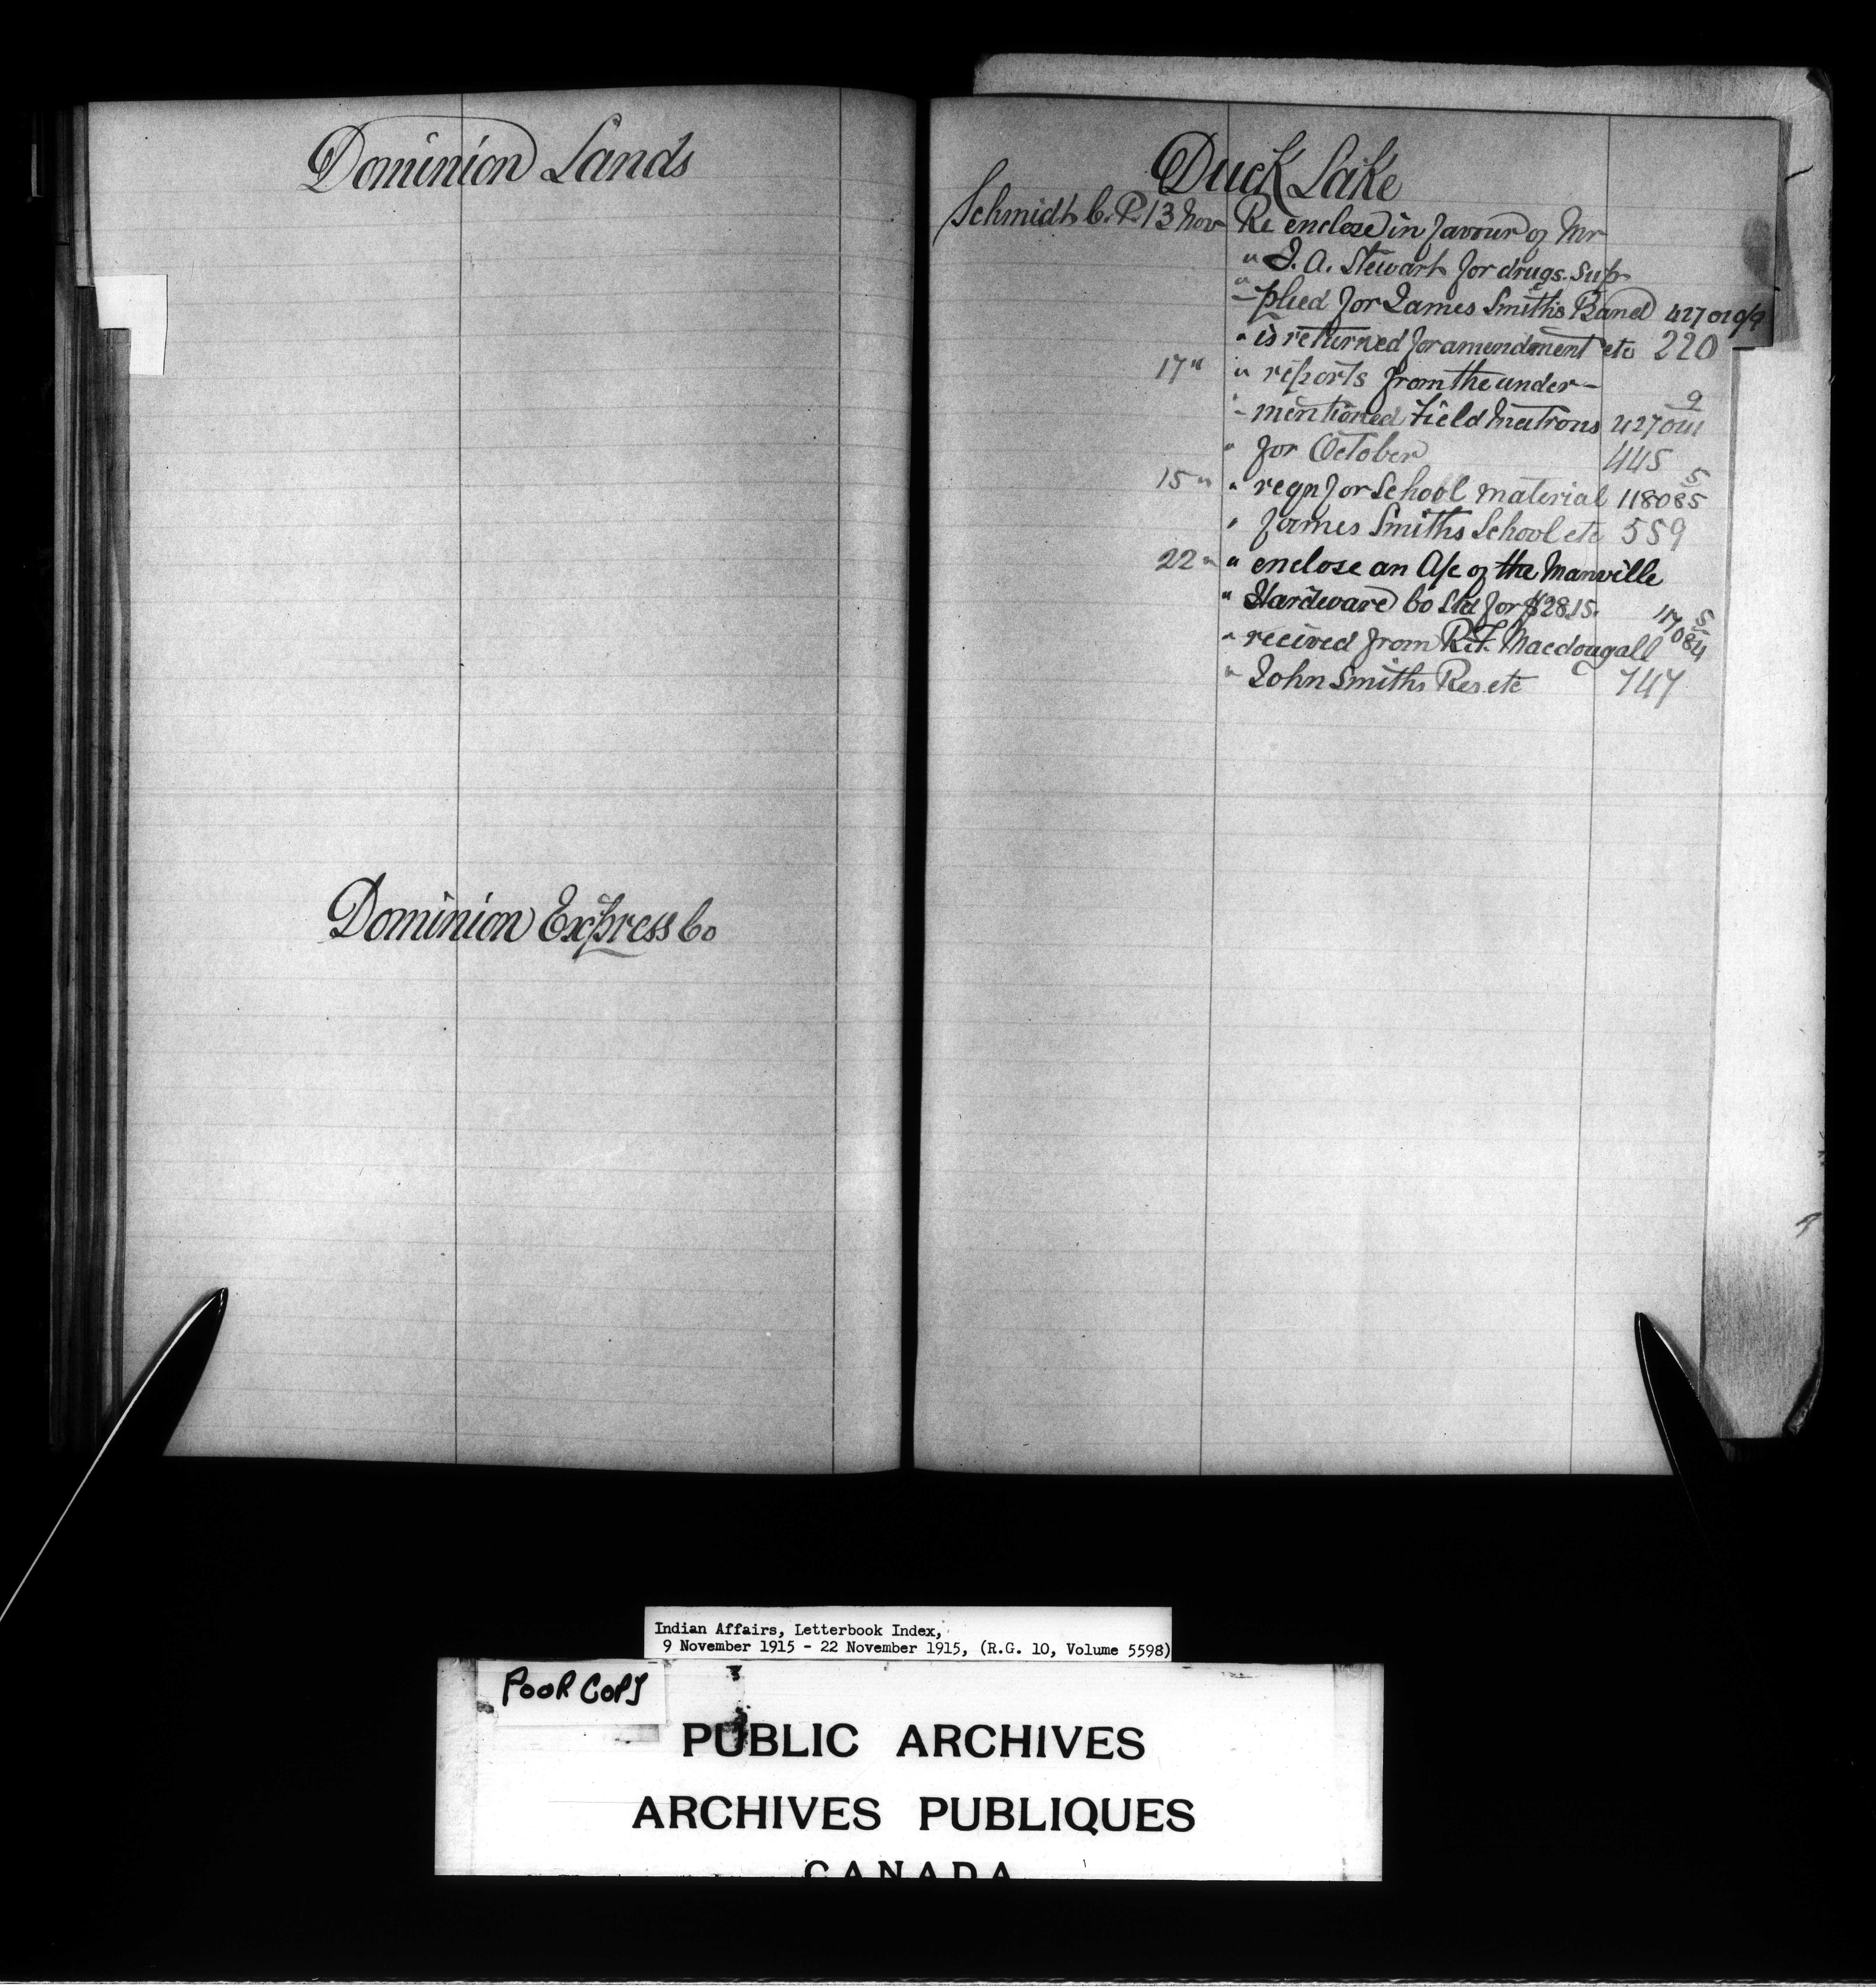 Dominion Lands
Dominion Express Co
Duck Lake
Schmidt C.P. 13 Nov Re enclose in favour of Mr
" J. A. Stewart for drugs sup-
" -plied for James Smith's Band
" is returned for amendment etc 220
17 " " reports from the under-
" -mentioned Field Matrons
" for October 445
15 " " reqn for School material 118085 5
" James Smiths School etc 559
22 " " enclose an A/c of the Manville
" Hardware Co Ltd for $28.15.
" recived from R.F. Macdougall
" John Smiths Res etc 747
Indian Affairs, Letterbook Index,
9 November 1915 - 22 November 1915, (R.G. 10, Volume 5598)
POOR COPY
PUBLIC ARCHIVES
ARCHIVES PUBLIQUES
CANADA